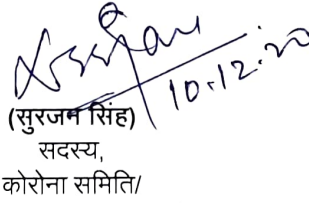 10.12.20
(सुरजन सिंह)
सदस्य,
कोरोना समिति/